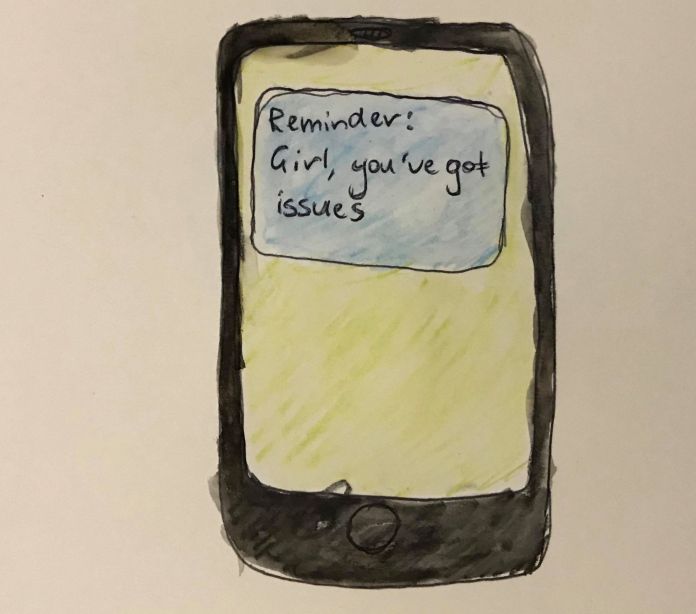 Reminder:
Girl, you've got
issues